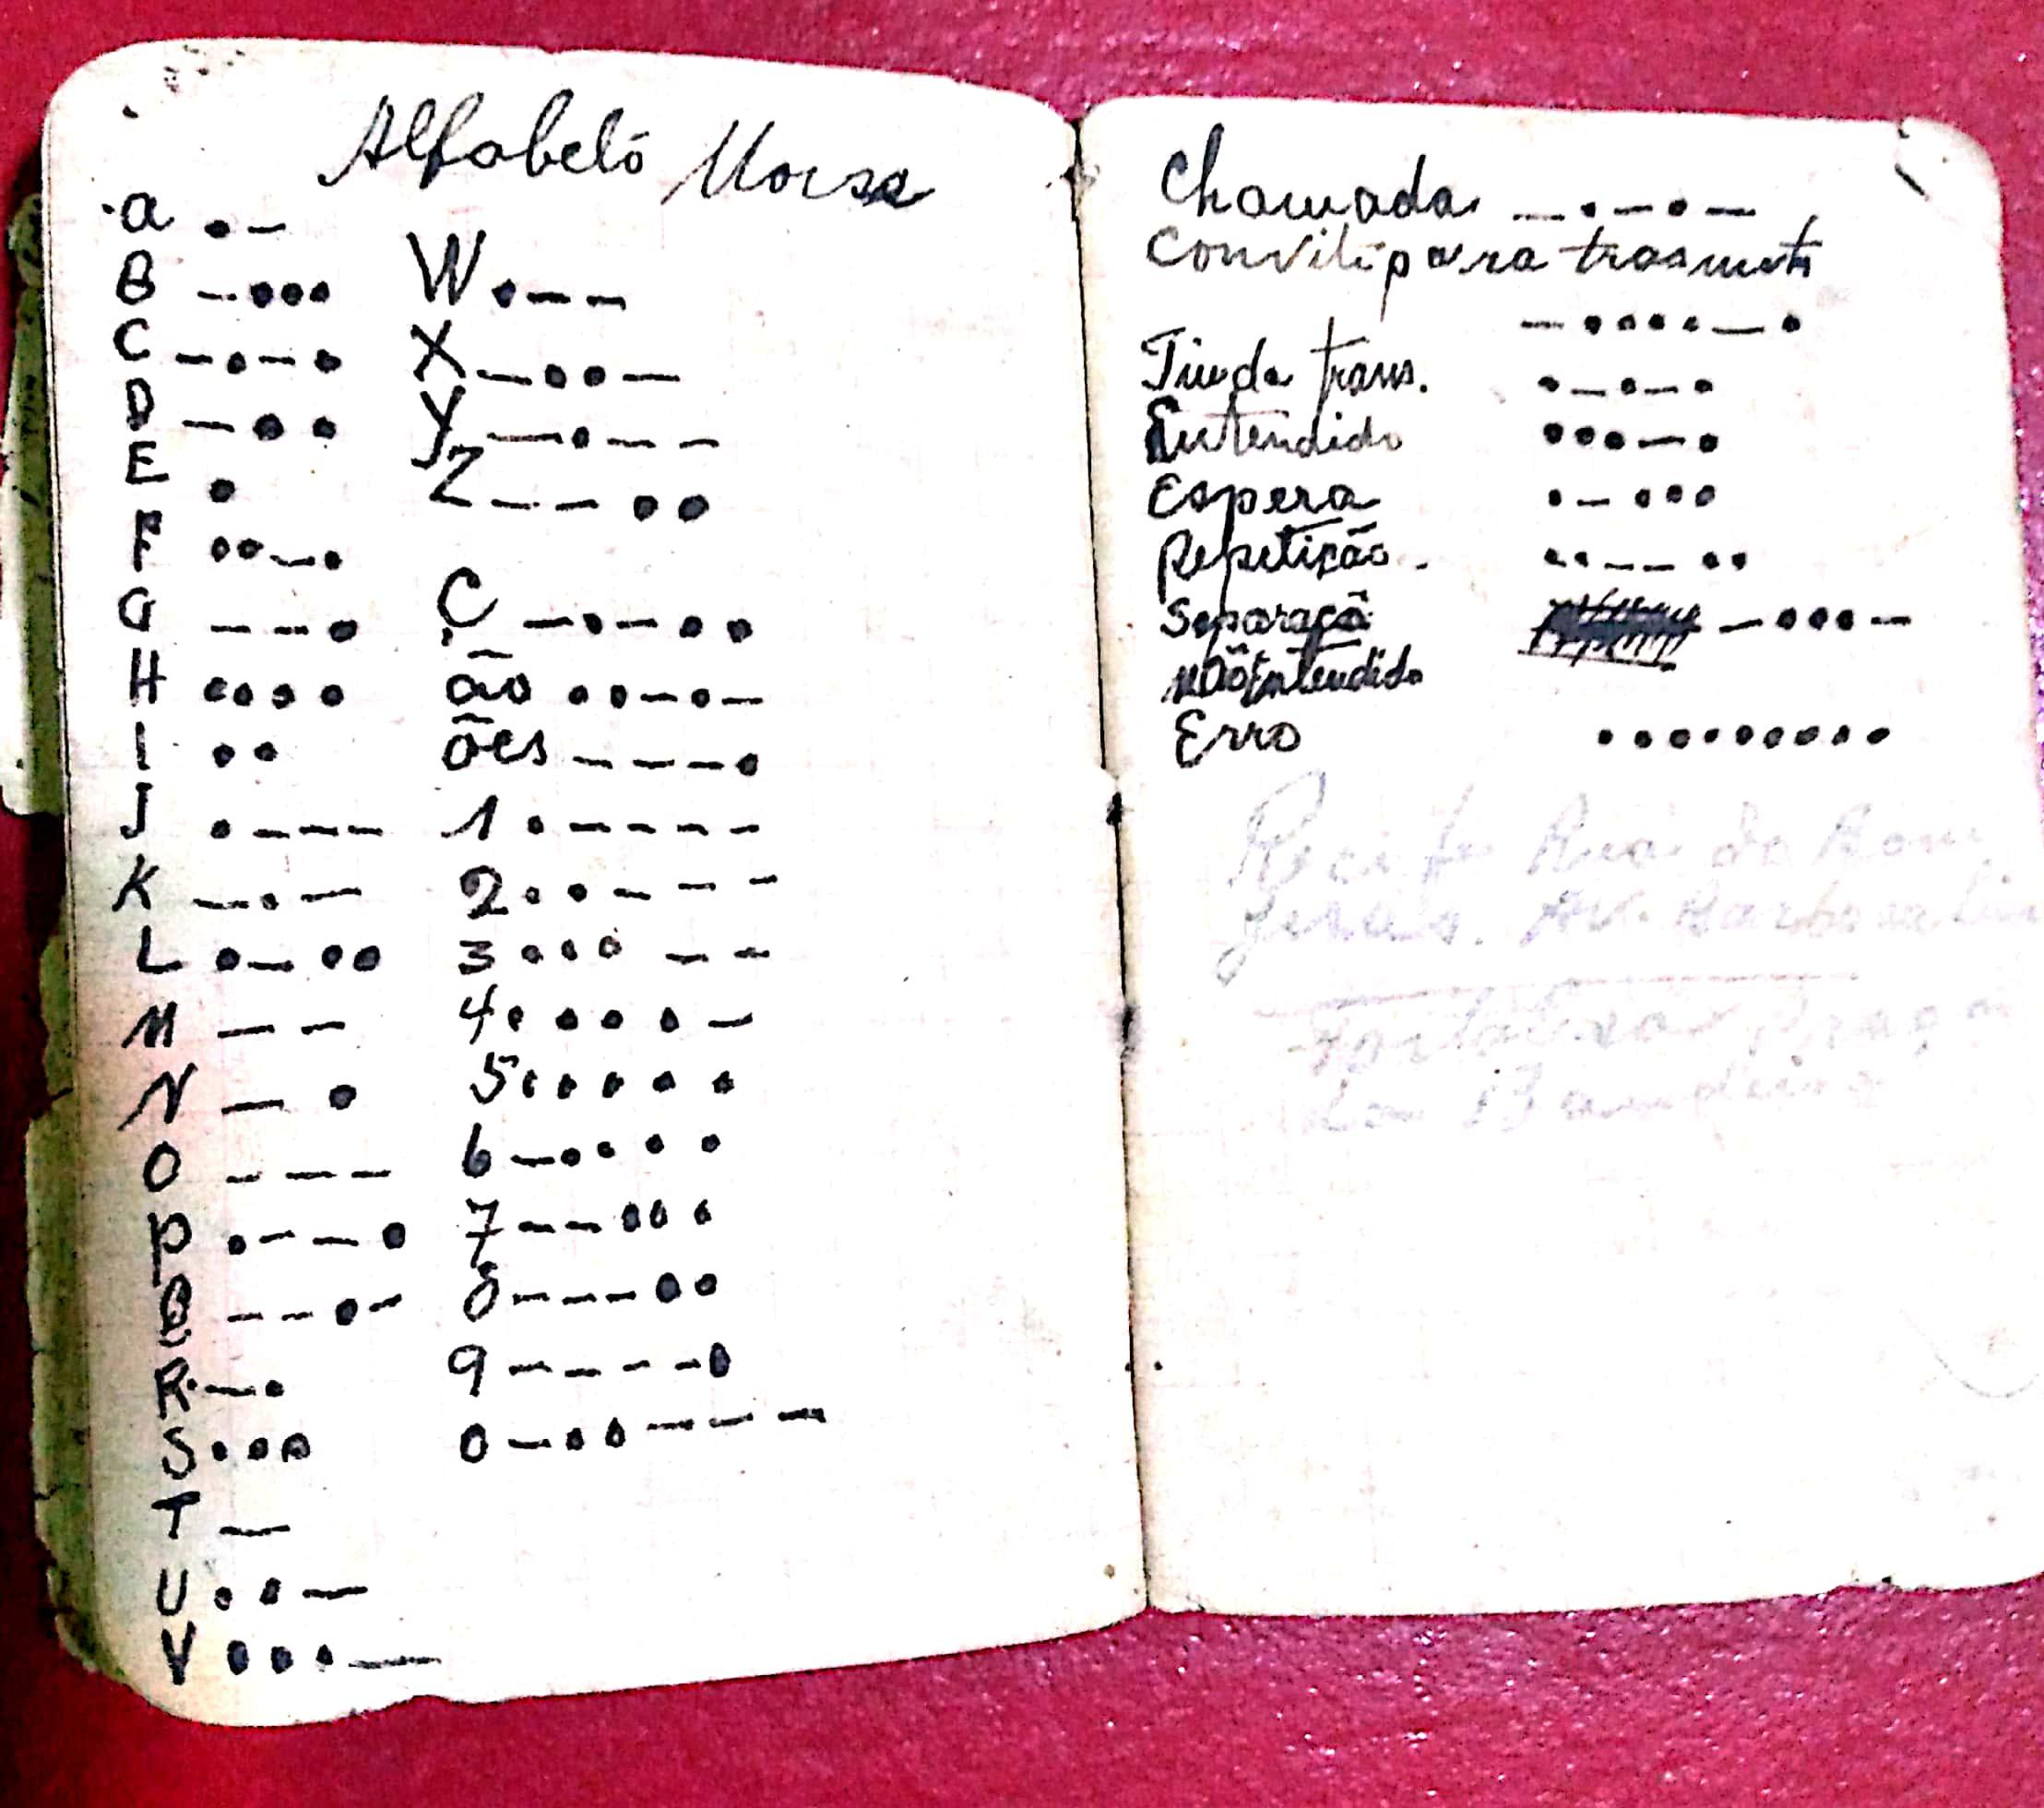 Alfabeto Morse
A . -
B - . . .
C - . - .
D - . .
E .
F . . - .
G - - .
H . . . .
I . .
J . - - -
K - . -
L . - . .
M - -
N - .
O - - -
P . - - .
Q - - . -
R . - .
S . . .
T -
U . . -
V . . . -
W . - -
X - . . -
Y - . - -
Z - - . .
Ç - . - . .
ão . . - . -
ões - - - - .
1 . - - - -
2 . . - - -
3 . . . - -
4 . . . . -
5 . . . . .
6 - . . . .
7 - - . . .
8 - - - . .
9 - - - - .
0 - . . - - -
Chamada - . - . -
Convite para trasmeti
- . . . . - .
Fim da trans. . - . - .
Entendido . . . - .
Espera . - . . .
Repetição . . . - - . .
Separaçã - . . . -
não Entendido
Erro . . . . . . . . .
Recife Rua do Bom
Jesus. Av. Barbosa Lim
Fortaleza Praça
da Bandeira